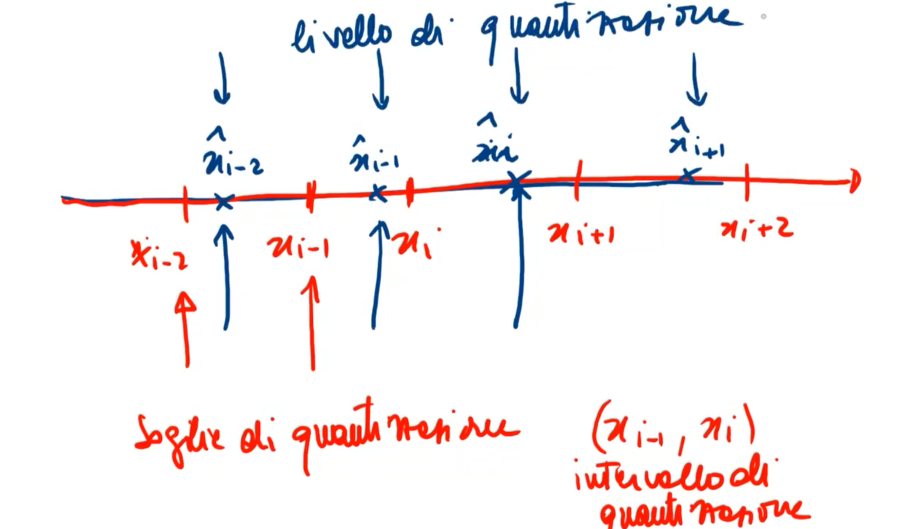 livello di quantizzazione
x̂i-2 x̂i-1 x̂i x̂i+1
xi-2 xi-1 xi xi+1 xi+2
soglie di quantizzazione
(xi-1, xi)
intervallo di
quantizzazione